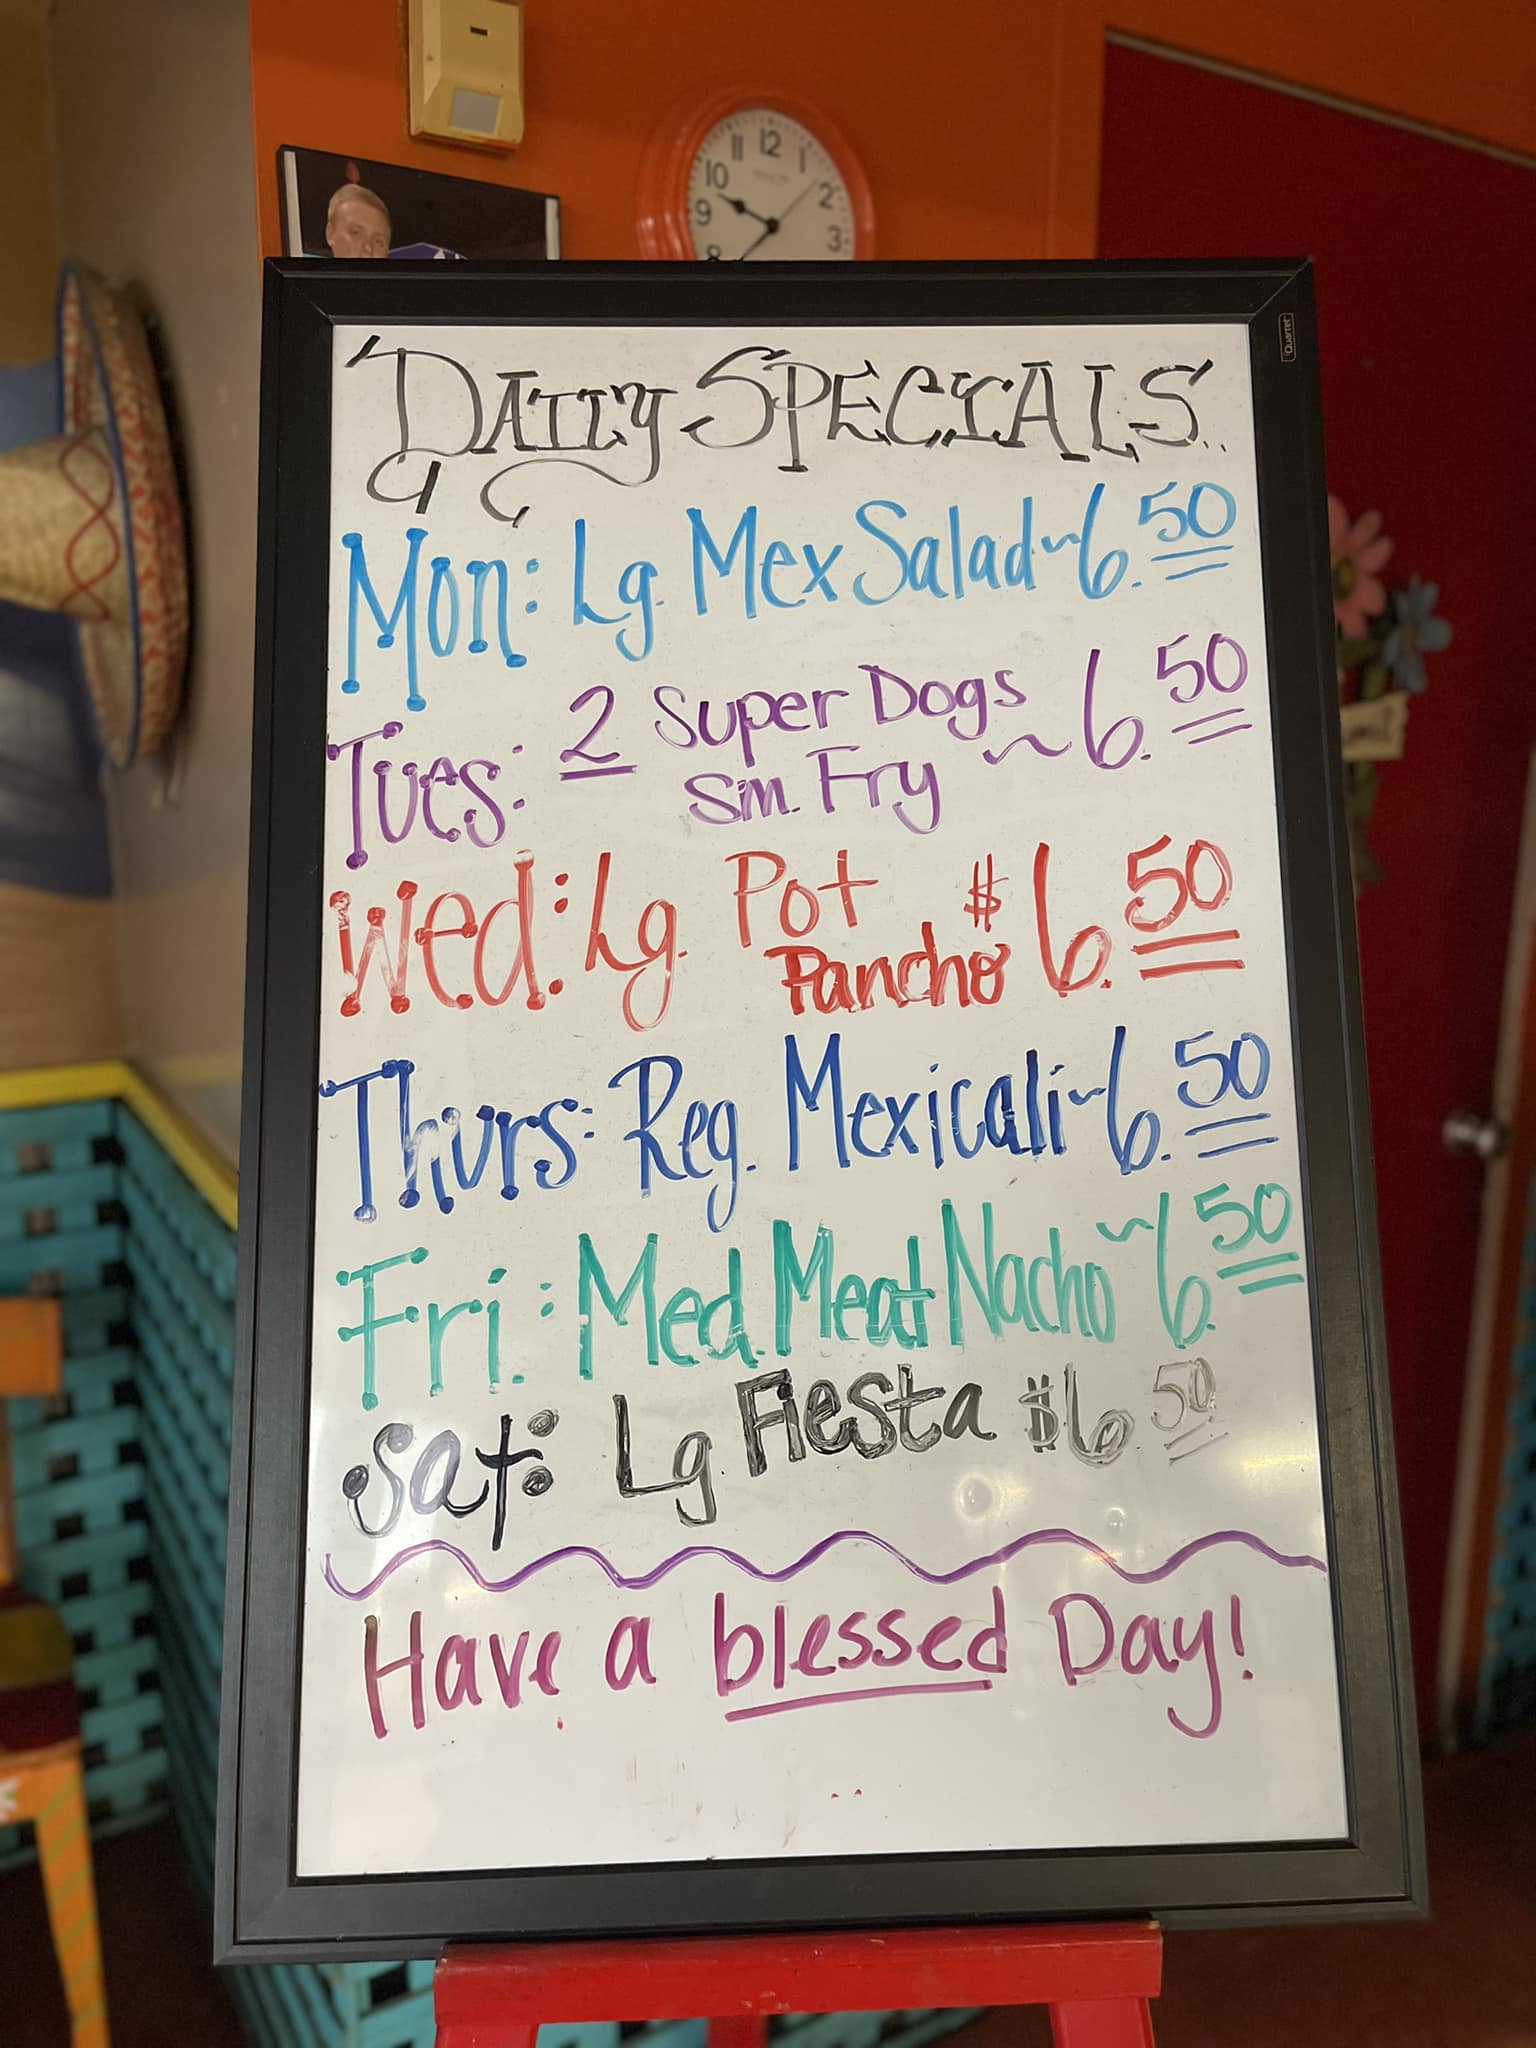 12
11
1
10
2
9
3
8
Quartet
DAILY SPECIALS..
Mon: Lg. Mex Salad ~ 6.50
Tues: 2 Super Dogs ~ 6.50
Sm. Fry
Wed: Lg. Pot $6.50
Pancho
Thurs: Reg. Mexicali ~ 6.50
Fri.: Med. Meat Nacho ~ 6.50
Sat: Lg Fiesta $6 50
Have a blessed Day!